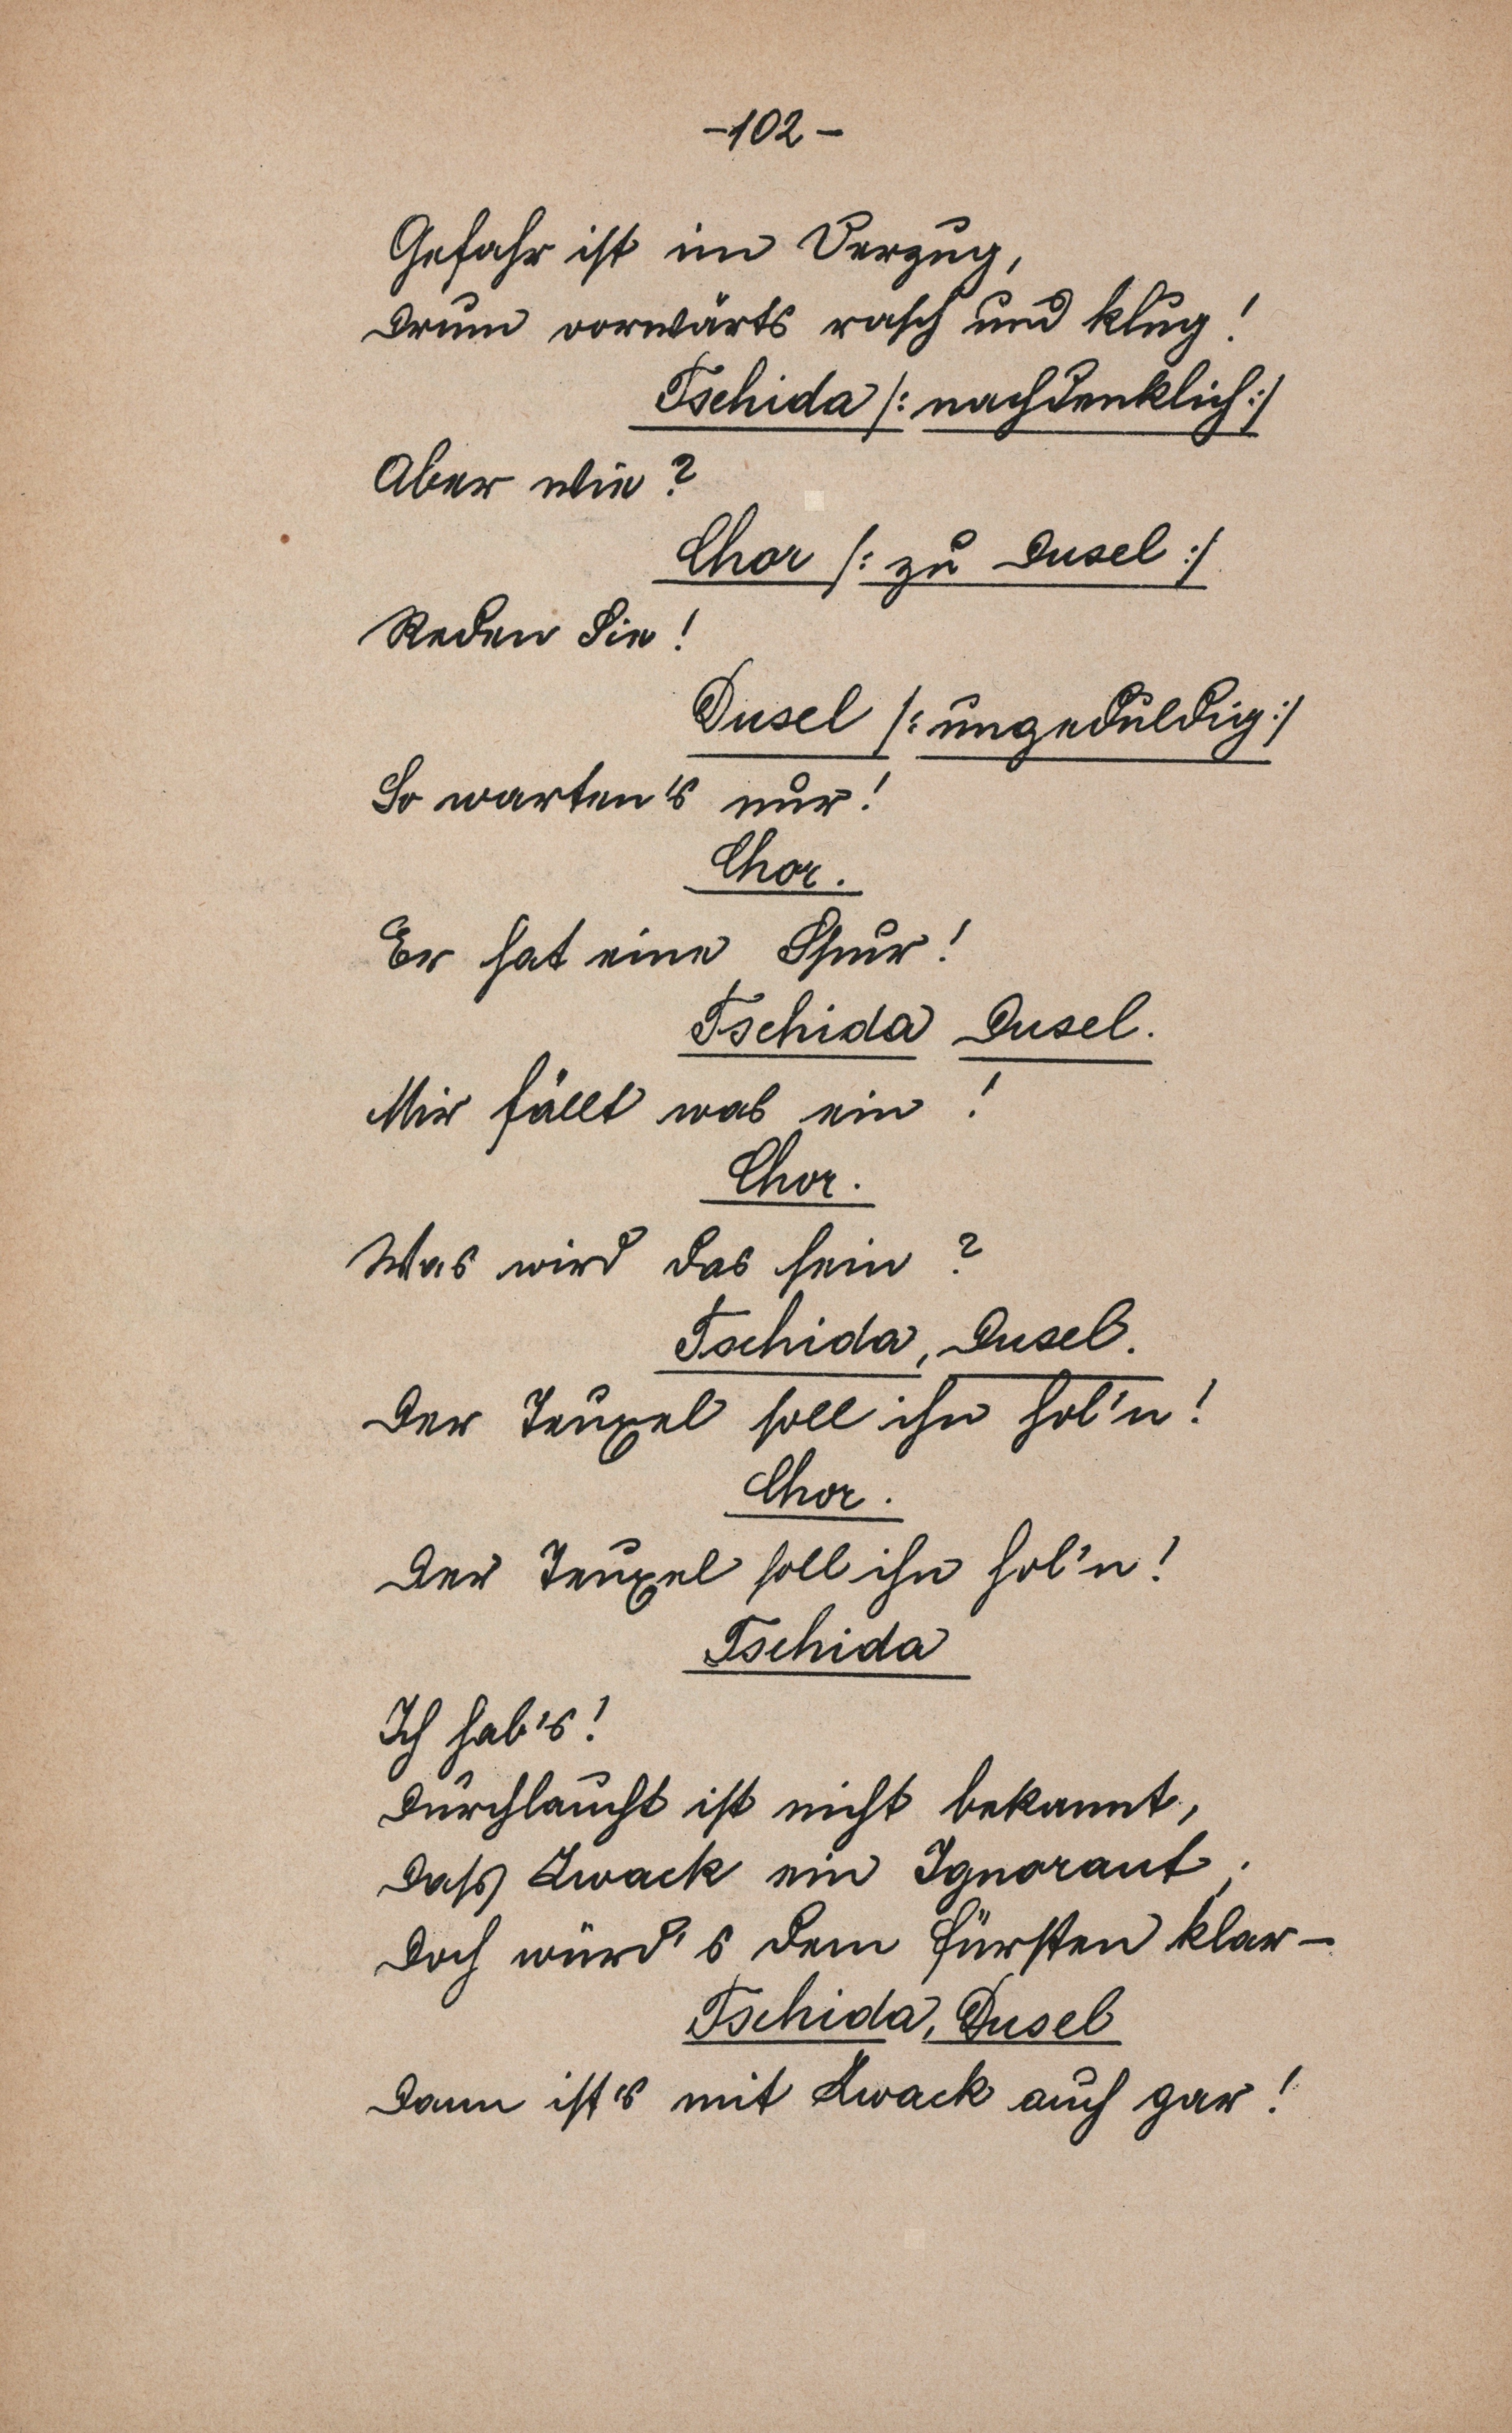 -102-
Gefahr ist im Verzug,
Drum vorwärts rasch und klug!
Tschida /: nachdenklich :/
Aber wie?
Chor /: zu Dusel :/
Reden Sie!
Dusel /: ungeduldig :/
So warten's nur!
Chor.
Er hat eine Spur!
Tschida Dusel.
Mir fällt was ein!
Chor.
Was wird das sein?
Tschida, Dusel.
Der Teuxel soll ihn hol'n!
Chor.
Der Teuxel soll ihn hol'n!
Tschida
Ich hab's!
Durchlaucht ist nicht bekannt,
Dass Zwack ein Ignorant;
Doch würd's dem Fürsten klar-
Tschida, Dusel
Dann ist's mit Zwack auch gar!